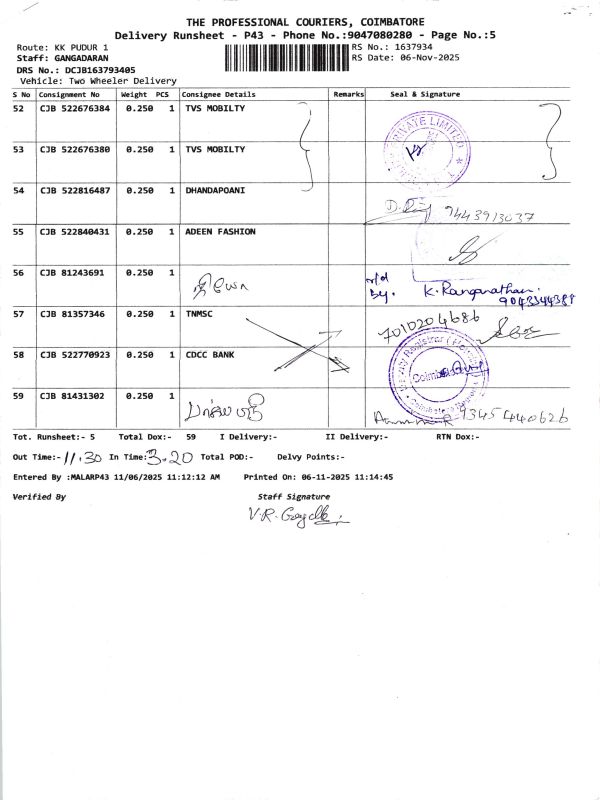 THE PROFESSIONAL COURIERS, COIMBATORE
Delivery Runsheet - P43 - Phone No.:9047080280 - Page No.:5
Route: KK PUDUR 1 RS No.: 1637934
Staff: GANGADARAN RS Date: 06-Nov-2025
DRS No.: DCJB163793405
Vehicle: Two Wheeler Delivery
S No Consignment No Weight PCS Consignee Details Remarks Seal & Signature
52 CJB 522676384 0.250 1 TVS MOBILTY
PRIVATE LIMITED
53 CJB 522676380 0.250 1 TVS MOBILTY
54 CJB 522816487 0.250 1 DHANDAPOANI
9443913037
55 CJB 522840431 0.250 1 ADEEN FASHION
56 CJB 81243691 0.250 1
r/d By. K. Ranganathan.
9043344388
57 CJB 81357346 0.250 1 TNMSC
7010204686
58 CJB 522770923 0.250 1 CDCC BANK
59 CJB 81431302 0.250 1
9345440626
Tot. Runsheet:- 5 Total Dox:- 59 I Delivery:- II Delivery:- RTN Dox:-
Out Time:- 11.30 In Time:- 3.20 Total POD:- Delvy Points:-
Entered By :MALARP43 11/06/2025 11:12:12 AM Printed On: 06-11-2025 11:14:45
Verified By Staff Signature